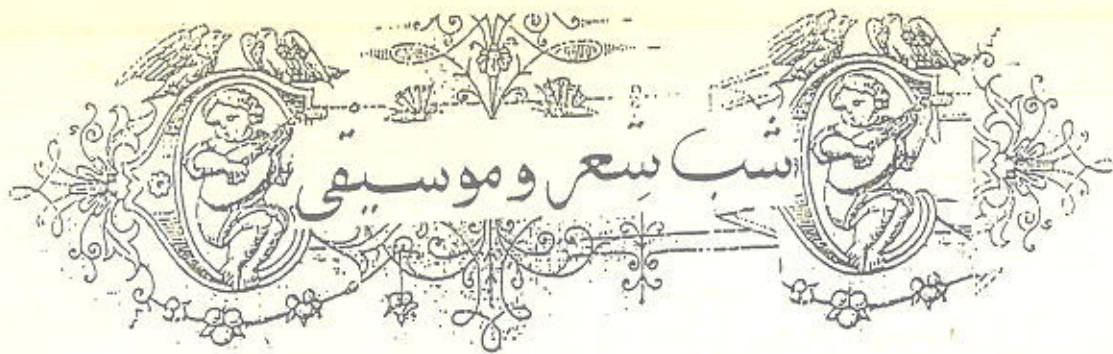 شب شِعر و موسیقی